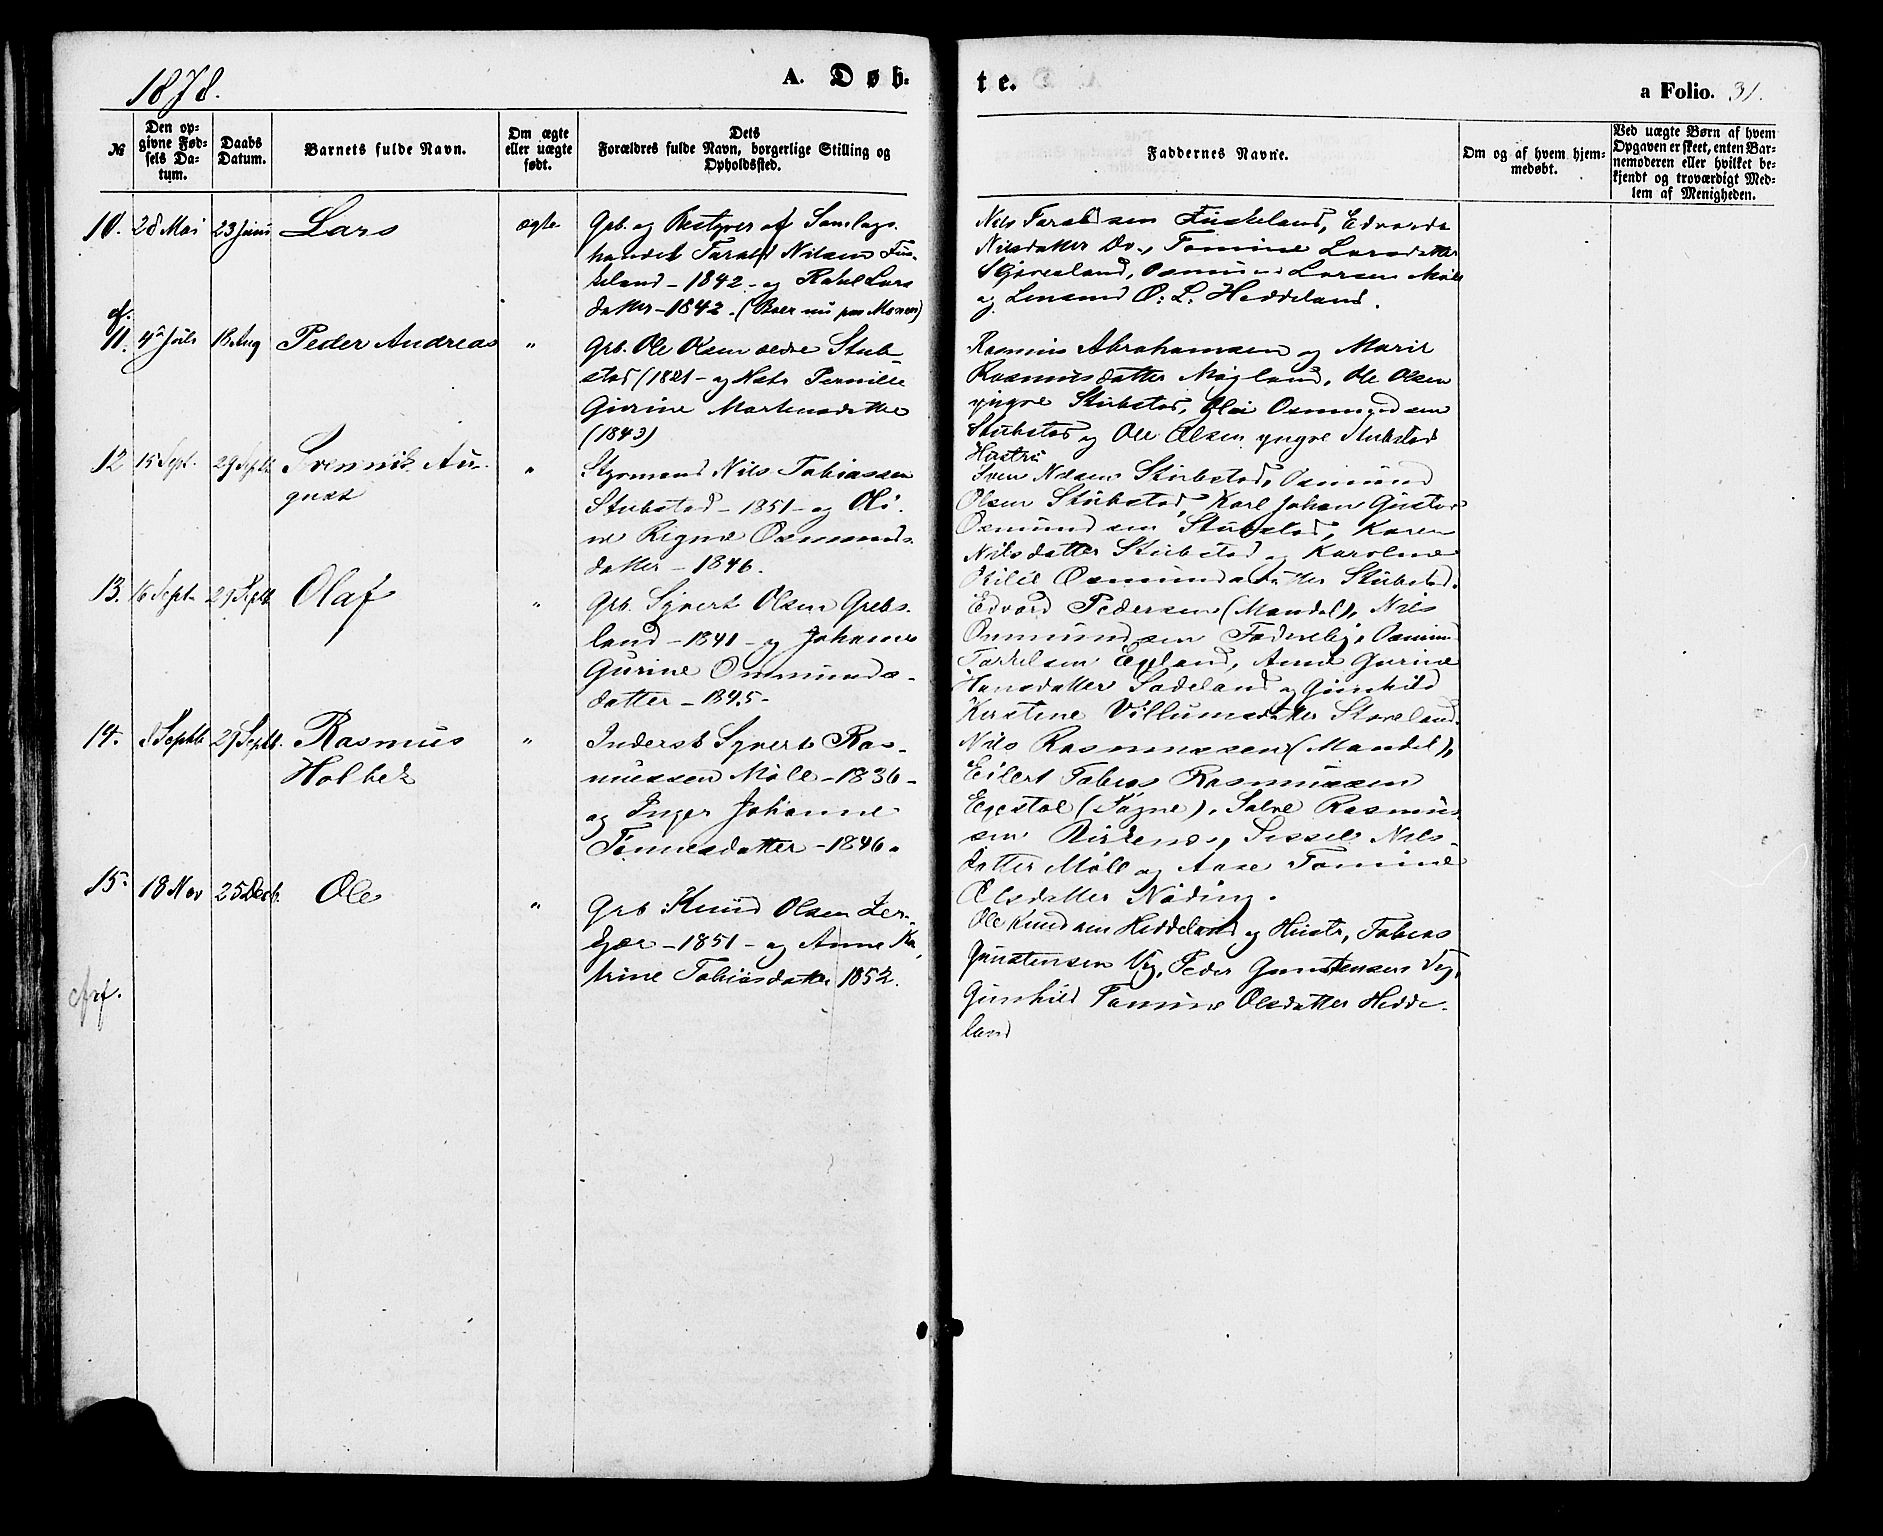 1878.
A. Døb-
te.
a Folio. 31.
№
Den op-
givne Fød-
sels Da-
tum.
Daabs
Datum.
Barnets fulde Navn.
Om ægte
eller uægte
født.
Dets
Forældres fulde Navn, borgerlige Stilling og
Opholdssted.
Faddernes Navne.
Om og af hvem hjem-
medøbt.
Ved uægte Børn af hvem
Opgaven er skeet, enten Bar-
nemoderen eller hvilket be-
kjendt og troværdigt Med-
lem af Menigheden.
10.
28 Mai
23 Juni
Lars
ægte
Grb. og Bestyrer af Samlags-
handel Tarald Nilsen Fus-
keland - 1842 - og Rakel Lars
datter - 1842. (Boer nu paa Monen)
Nils Taraldsen Fuskeland, Edvarda
Nilsdatter Do., Tomine Larsdatter
Skjævesland, Osmund Larsen Møll
og Lensmd O. L. Heddeland.
11.
4 Juli
18 Aug
Peder Andreas
"
Grb. Ole Olsen ældre Stub-
stad (1821 - og Hstr Pernille
Gurine Martensdatter
(1843)
Rasmus Abrahamsen og Marie
Rasmusdatter Møgland, Ole Olsen
yngre Stubstad, Osmundsen
Stubstad og Ole Olsen yngre Stubstad
Hustru
12
15 Sept.
29 Septb
Svennik Au-
gust
"
Styrmand Nils Tobiassen
Stubstad - 1851 - og Oli-
ne Regine Osmunds-
datter - 1846.
Sven Nilsen Stubstad, Osmund
Olsen Stubstad, Karl Johan Gustav
Osmundsen Stubstad, Karen
Nilsdatter Stubstad og Karoline
Otilie Osmundsdatter Stubstad.
13.
16 Sept.
29 Septb
Olaf
"
Grb. Syvert Olsen Grebs-
land - 1841 - og Johanne
Gurine Ommunds-
datter - 1845 -
Edvard Pedersen (Mandal), Nils
Ommundsen Osmund
Torkelsen Egeland, Anne Gurine
Hansdatter Sodeland og Gunhild
Kerstine Villumsdatter Stoveland.
14.
8 Septb
29 Septb.
Rasmus
Holbek
"
Inderst Syvert Ras-
mussen Møll - 1836 -
og Inger Johanne
Tønnesdatter - 1846.
Nils Rasmussen (Mandal),
Eilert Tobias Rasmussen
Egestøl (Søgne), Salve Rasmus-
sen Birkenes, Sissel Nils-
datter Møll og Aase Tomine
Olsdatter Nøding.
15.
18 Nov
25 Decb.
Ole
"
Grb. Knud Olsen Ler-
kjær - 1851 - og Anne Ka-
trine Tobiasdatter 1852.
Ole Knudsen Heddeland og Hustr, Tobias
Gunstensen Peder Gunstensen
Gunhild Tomine Olsdatter Hedde-
land